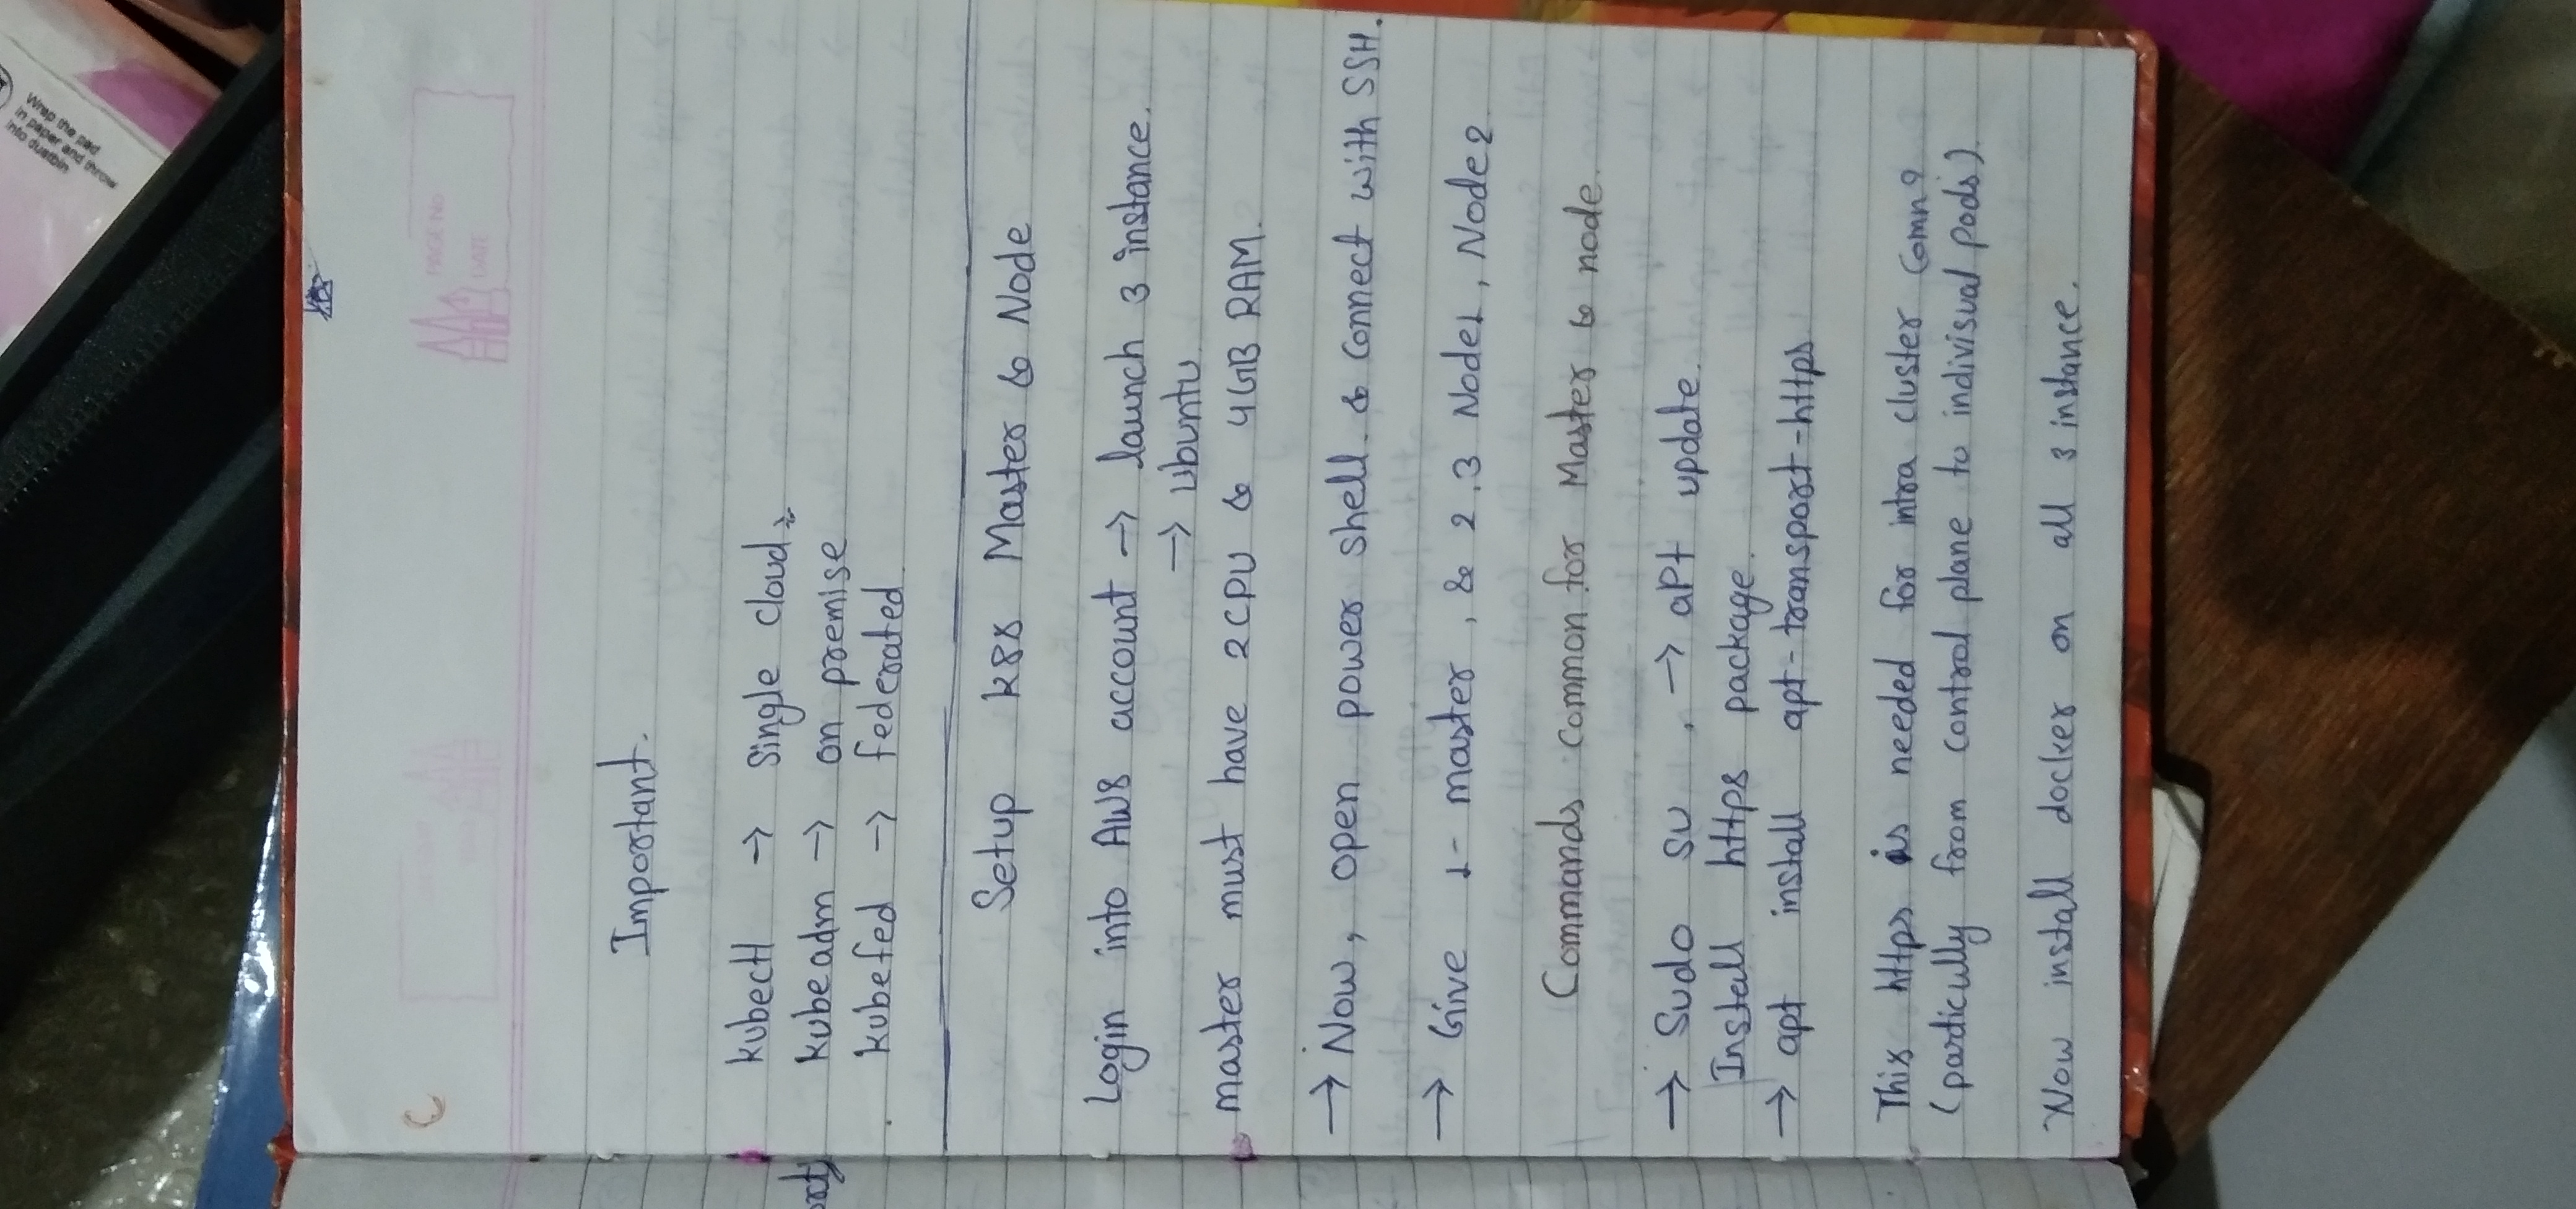 Wrap the pad
in paper and throw
into dustbin
PAGE No
DATE
Important.
kubectl → single cloud
kubeadm → on premise
kubefed → federated
Setup k8s Master & Node
Login into AWS account → launch 3 instance.
→ Ubuntu
master must have 2CPU & 4GB RAM.
→ Now, open power shell. & connect with SSH.
→ Give 1- master, & 2.3 Node1, Node2
Commands common for Master & node.
→ Sudo su , → apt update.
Install https package.
→ apt install apt-transport-https
This https is needed for intra cluster comn
(particully from control plane to indivisual pods)
Now install docker on all 3 instance.